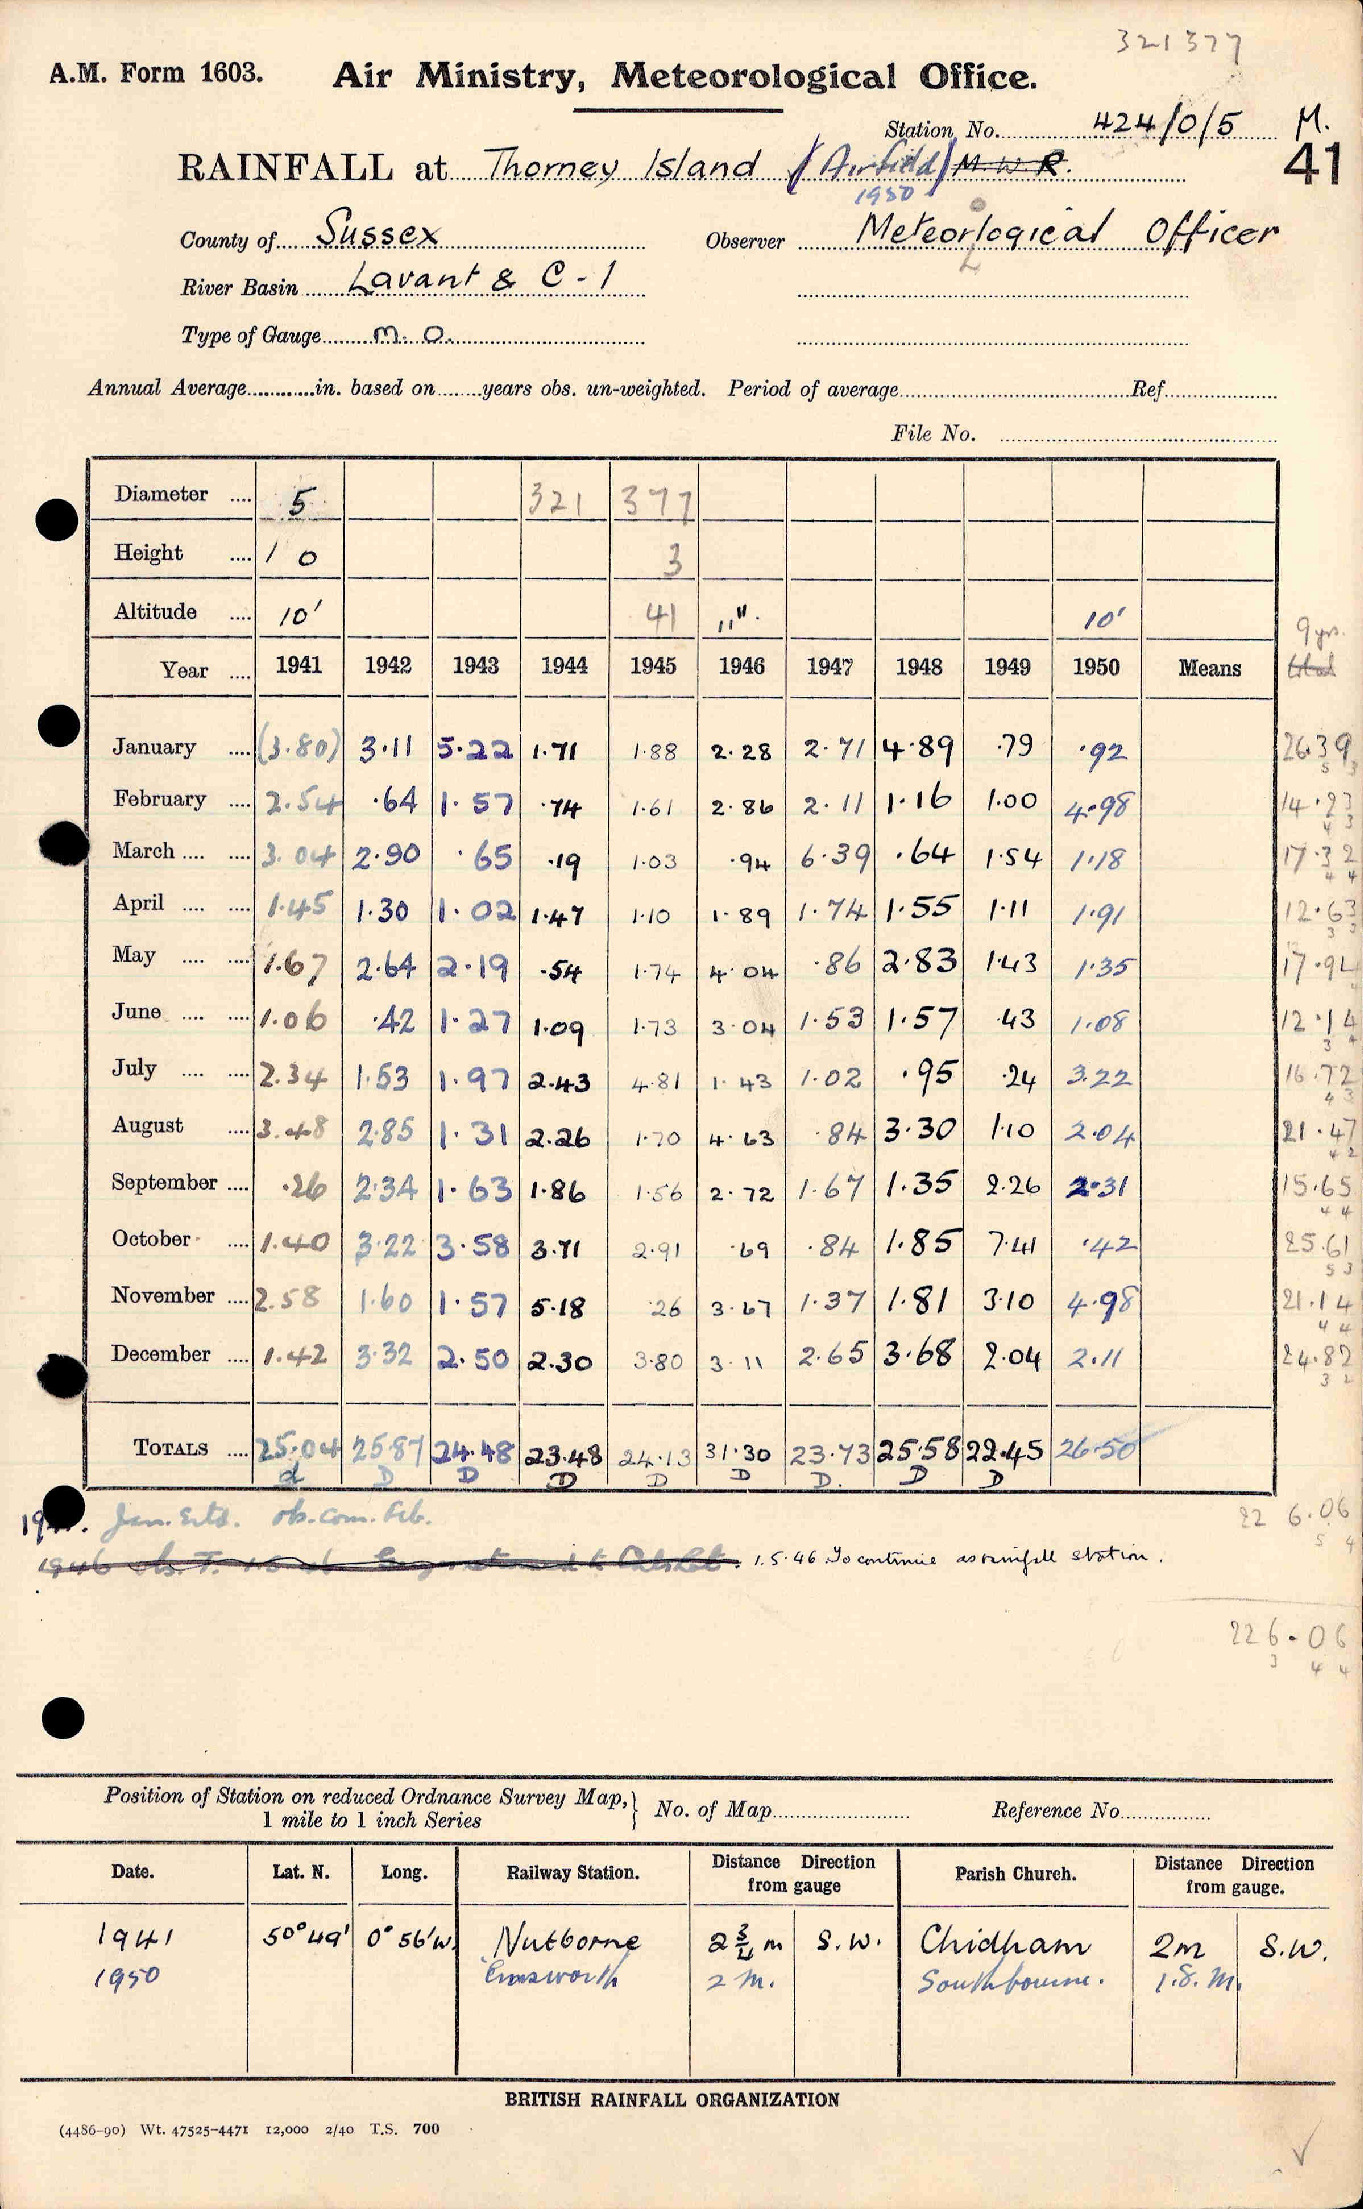 321377
A.M. Form 1603. Air Ministry, Meteorological Office.
Station No. 424/0/5 M.
41
RAINFALL at Thorney Island (Airfield) M.W.R.
1950
County of Sussex Observer Meteorological Officer
River Basin Lavant & C - 1
Type of Gauge M. O.
Annual Average in. based on years obs. un-weighted. Period of average Ref.
File No.
Diameter 5 321 377
Height 1 0 3
Altitude 10' 41 "". 10'
9 yr.
Year 1941 1942 1943 1944 1945 1946 1947 1948 1949 1950 Means total
January (3.80) 3.11 5.22 1.71 1.88 2.28 2.71 4.89 .79 .92 26.39
February 2.54 .64 1.57 .74 1.61 2.86 2.11 1.16 1.00 4.98 14.23
March 3.04 2.90 .65 .19 1.03 .94 6.39 .64 1.54 1.18 17.32
April 1.45 1.30 1.02 1.47 1.10 1.89 1.74 1.55 1.11 1.91 12.63
May 1.67 2.64 2.19 .54 1.74 4.04 .86 2.83 1.43 1.35 17.94
June 1.06 .42 1.27 1.09 1.73 3.04 1.53 1.57 .43 1.08 12.14
July 2.34 1.53 1.97 2.43 4.81 1.43 1.02 .95 .24 3.22 16.72
August 3.48 2.85 1.31 2.26 1.70 4.63 .84 3.30 1.10 2.04 21.47
September .26 2.34 1.63 1.86 1.56 2.72 1.67 1.35 2.26 2.31 15.65
October 1.40 3.22 3.58 3.71 2.91 .69 .84 1.85 7.41 .42 25.61
November 2.58 1.60 1.57 5.18 26 3.67 1.37 1.81 3.10 4.98 21.14
December 1.42 3.32 2.50 2.30 3.80 3.11 2.65 3.68 2.04 2.11 24.82
TOTALS 25.04 25.87 24.48 23.48 24.13 31.30 23.73 25.58 22.45 26.50
d D D D D D D. D D
Jan. Estd. ob. com. Feb. 22 6.06
1946 1.5.46 To continue as rainfall station.
226.06
3 4 4
Position of Station on reduced Ordnance Survey Map, 1 mile to 1 inch Series } No. of Map Reference No.
Date. Lat. N. Long. Railway Station. Distance Direction from gauge Parish Church. Distance Direction from gauge.
1941 50° 49' 0° 56'W. Nutborne 2 3/4 m S.W. Chidham 2m S.W.
1950 Emsworth 2 M. Southbourne. 1.8. M.
BRITISH RAINFALL ORGANIZATION
(4486-90) Wt. 47525-4471 12,000 2/40 T.S. 700